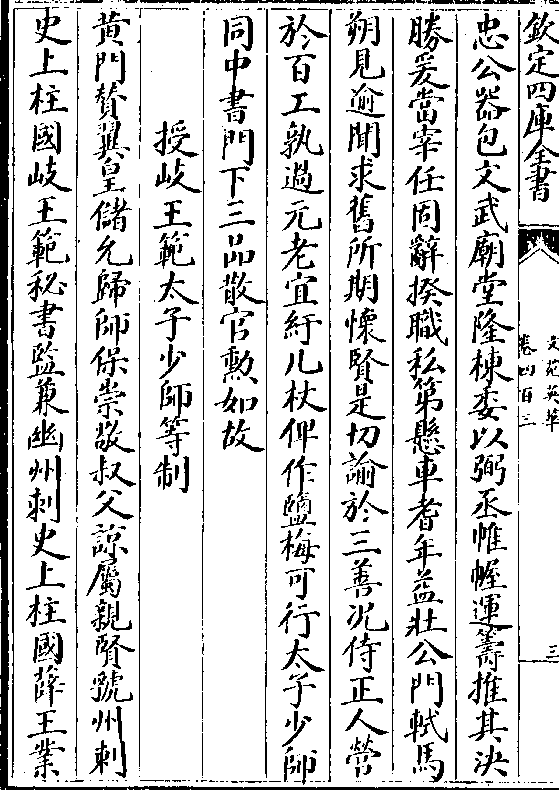 欽定四庫全書
文苑英華
卷四百三
三
忠公器包文武廟堂隆棟委以弼丞帷幄運籌推其決
勝爰當宰任固辭揆職私第懸車耆年益壯公門軾馬
朔見逾聞求舊所期懷賢是切諭於三善况侍正人營
於百工孰過元老宜紆几杖俾作鹽梅可行太子少師
同中書門下三品散官勲如故
授岐王範太子少師等制
黄門賛翼皇儲允歸師保崇敬叔父諒屬親賢虢州刺
史上柱國岐王範秘書監兼幽州刺史上柱國薛王業